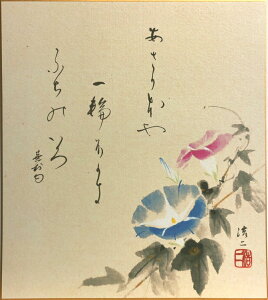 あさがほや
一輪ふかき
ふちのいろ
蕪村句